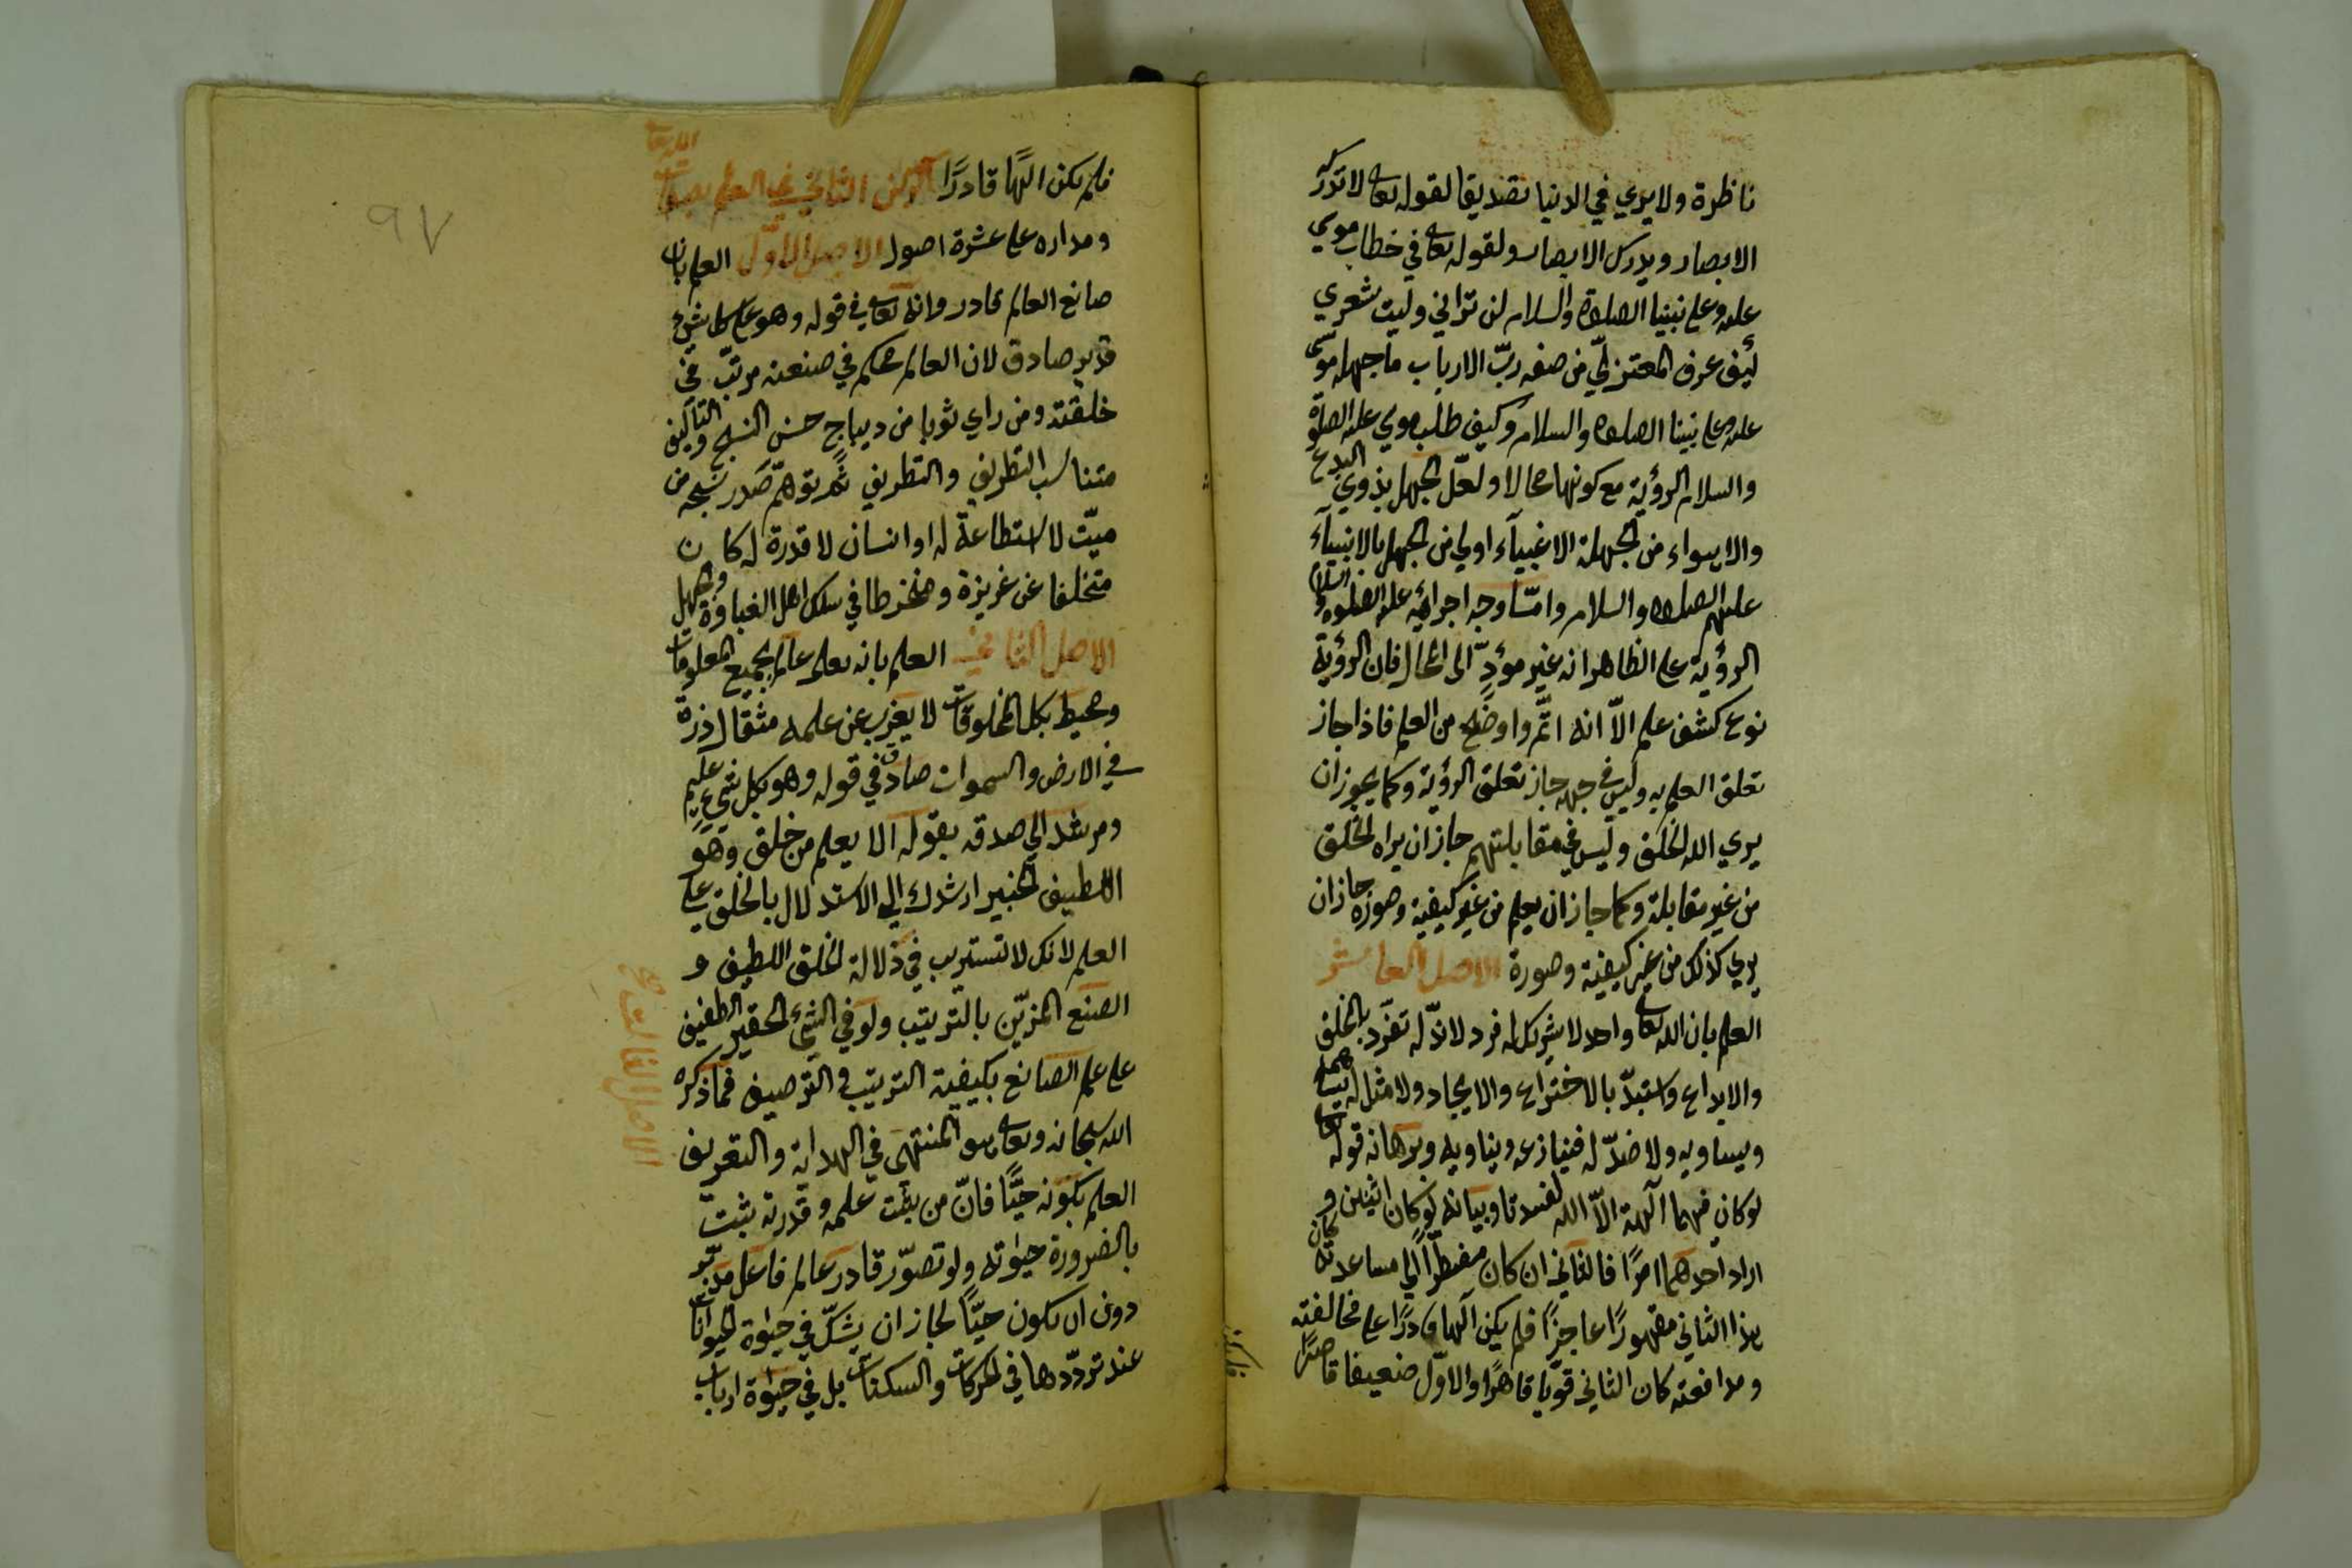 ناظرة ولا يري في الدنيا تصديقا لقوله تعالى لا تدركه
الابصار ويدرك الابصار ولقوله تعالى في خطاب موسي
عليه وعلى نبينا الصلوة والسلام لن تراني وليت شعري
كيف عرف المعتزلي من صفه ربّ الارباب ما جهله موسى
عليه وعلى نبينا الصلوة والسلام وكيف طلب موسي عليه الصلوة
والسلام الرؤية مع كونها محالا ولعلّ الجهل بذوي البدع
والاهواء من الجهلة الاغبياء اولي من الجهل بالانبياء
عليهم الصلوة والسلام وامّا وجه اجرائه عليه الصلوة والسلام
الرؤية على الظاهر انه غير مؤدٍّ الى المحال فان الرؤية
نوع كشف علم الاّ انه اتمّ واوضح من العلم فاذا جاز
تعلق العلم به وليس في جهه جاز تعلق الرؤية وكما يجوز ان
يري الله الخلق وليس في مقابلتهم جاز ان يراه الخلق
من غير مقابلة وكما جاز ان يعلم من غير كيفية وصورة جاز ان
يري كذلك من غير كيفية وصورة الاصل العاشر
العلم بان الله تعالى واحد لا شريك له فرد لا ندّ له تفرّد بالخلق
والابداع واستبدّ بالاختراع والايجاد ولا مثل له يساهمه
ويساويه ولا ضدّ له فينازعه ويناويه وبرهانه قوله تعالى
لو كان فيهما آلهة الاّ الله لفسدتا وبيانه لو كان اثنين و
اراد احدهما امرًا فالثاني ان كان مضطرّاً الي مساعدته كان
هذا الثاني مقهورًا عاجزًا فلم يكن آلها قادرًا على مخالفته
ومدافعته كان الثاني قويّا قاهرًا والاوّل ضعيفا قاصرًا
فلم يكن الهًا قادرًا الركن الثاني في العلم بصفات الله تعالى
ومداره على عشرة اصول الاصل الاوّل العلم بان
صانع العالم قادر وانه تعالى في قوله وهو على كل شيء
قدير صادق لان العالم محكم في صنعته مرتّب في
خلقته ومن راي ثوبا من ديباج حسن النسج والتأليف
متناسب التطريز والتطريف ثم توهّم صدر نسجه من
ميّت لا استطاعة له او انسان لا قدرة له كان
متخلفا عن غريزة ومنخرطا في سلك اهل الغباوة والجهل
الاصل الثاني العلم بانه تعلى عالم بجميع المعلومات
ومحيط بكل المخلوقات لا يعزب عن علمه مثقال ذرة
في الارض والسموات صادق في قوله وهو بكل شيء عليم
ومرشد الي صدقه بقوله الا يعلم من خلق وهو
اللطيف الخبير ارشدك الي الاستدلال بالخلق على
العلم لانك لا تستريب في دلالة الخلق اللطيف و
الصنع المزيّن بالترتيب ولو في الشيء الحقير الطفيف
على علم الصانع بكيفية الترتيب والترصيف فما ذكره
الله سبحانه وتعالى هو المنتهى في الهداية والتعريف
الاصل الثالث
العلم بكونه حيًّا فانّ من يثبت علمه وقدرته ثبت
بالضرورة حيوته ولو تصوّر قادر عالم فاعل مدبّر
دون ان يكون حيًّا لجاز ان يشكّ في حيوة الحيوانات
عند تردّدها في الحركات والسكنات بل في حيوة ارباب
٩٧